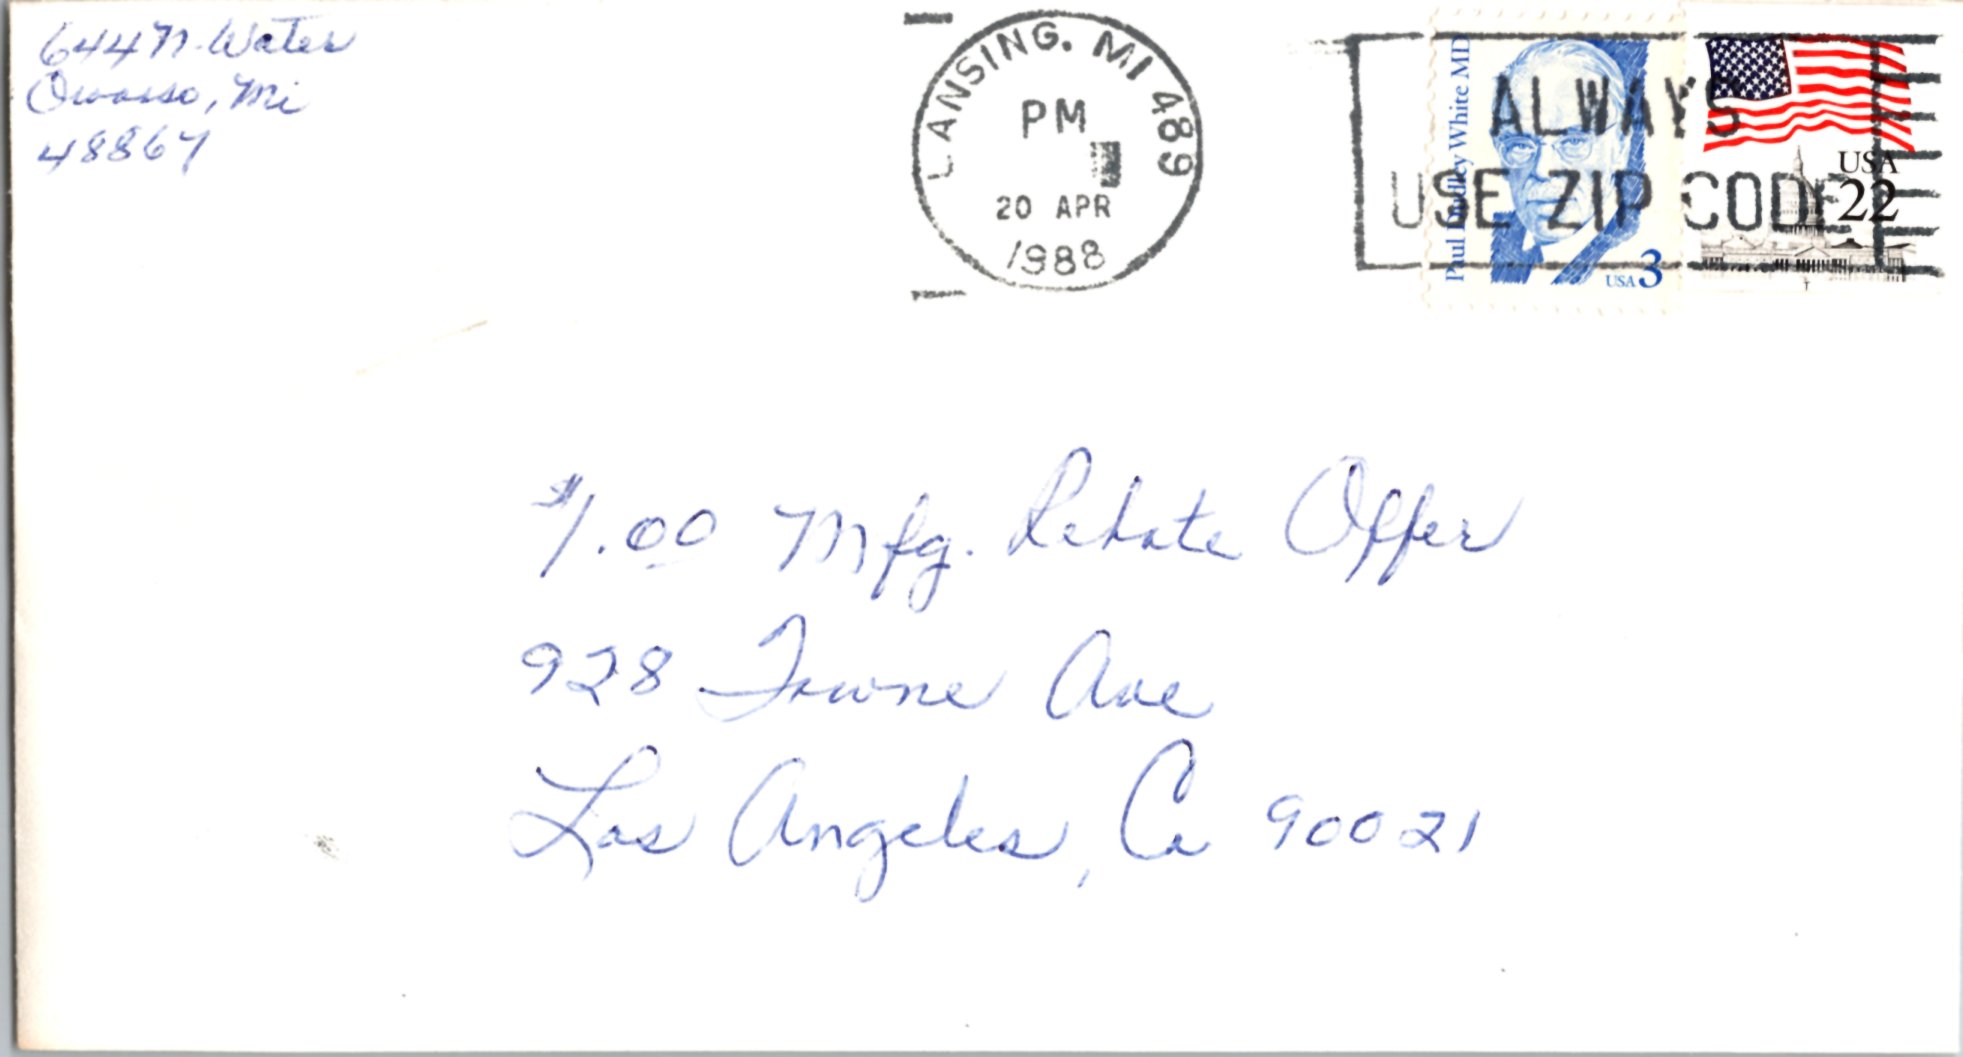 644 N. Water
Owosso, Mi
48867
LANSING, MI 489
PM
20 APR
1988
ALWAYS
USE ZIP CODE
Paul Dudley White MD
USA 3
USA
22
$1.00 Mfg. Rebate Offer
928 Towne Ave
Los Angeles, Ca 90021